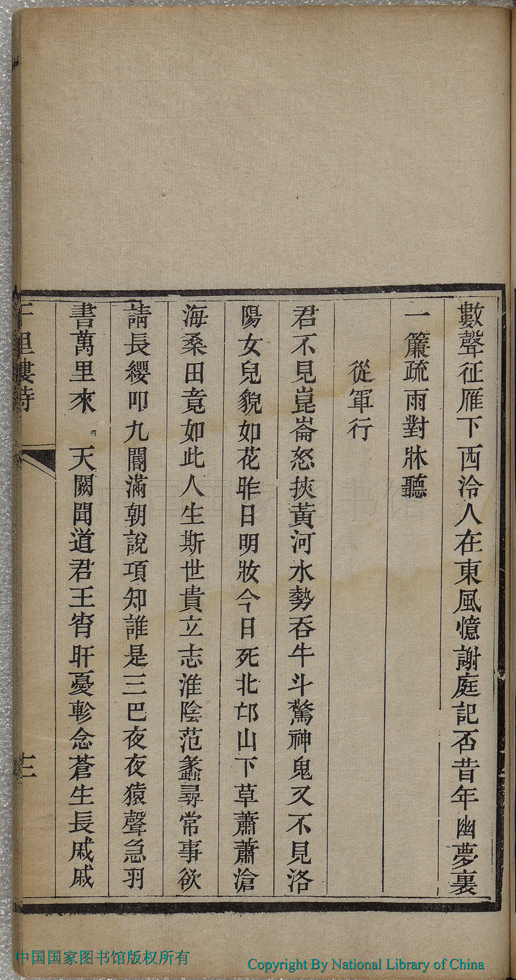 數聲征雁下西泠人在東風憶謝庭記否昔年幽夢裏
一簾疏雨對牀聽
從軍行
君不見崑崙怒挾黃河水勢吞牛斗驚神鬼又不見洛
陽女兒貌如花昨日明妝今日死北邙山下草蕭蕭滄
海桑田竟如此人生斯世貴立志淮陰范蠡尋常事欲
請長纓叩九閽滿朝說項知誰是三巴夜夜猿聲急羽
書萬里來 天闕聞道君王宵旰憂軫念蒼生長戚戚
里樓詩
中国国家图书馆版权所有
Copyright By National Library of China